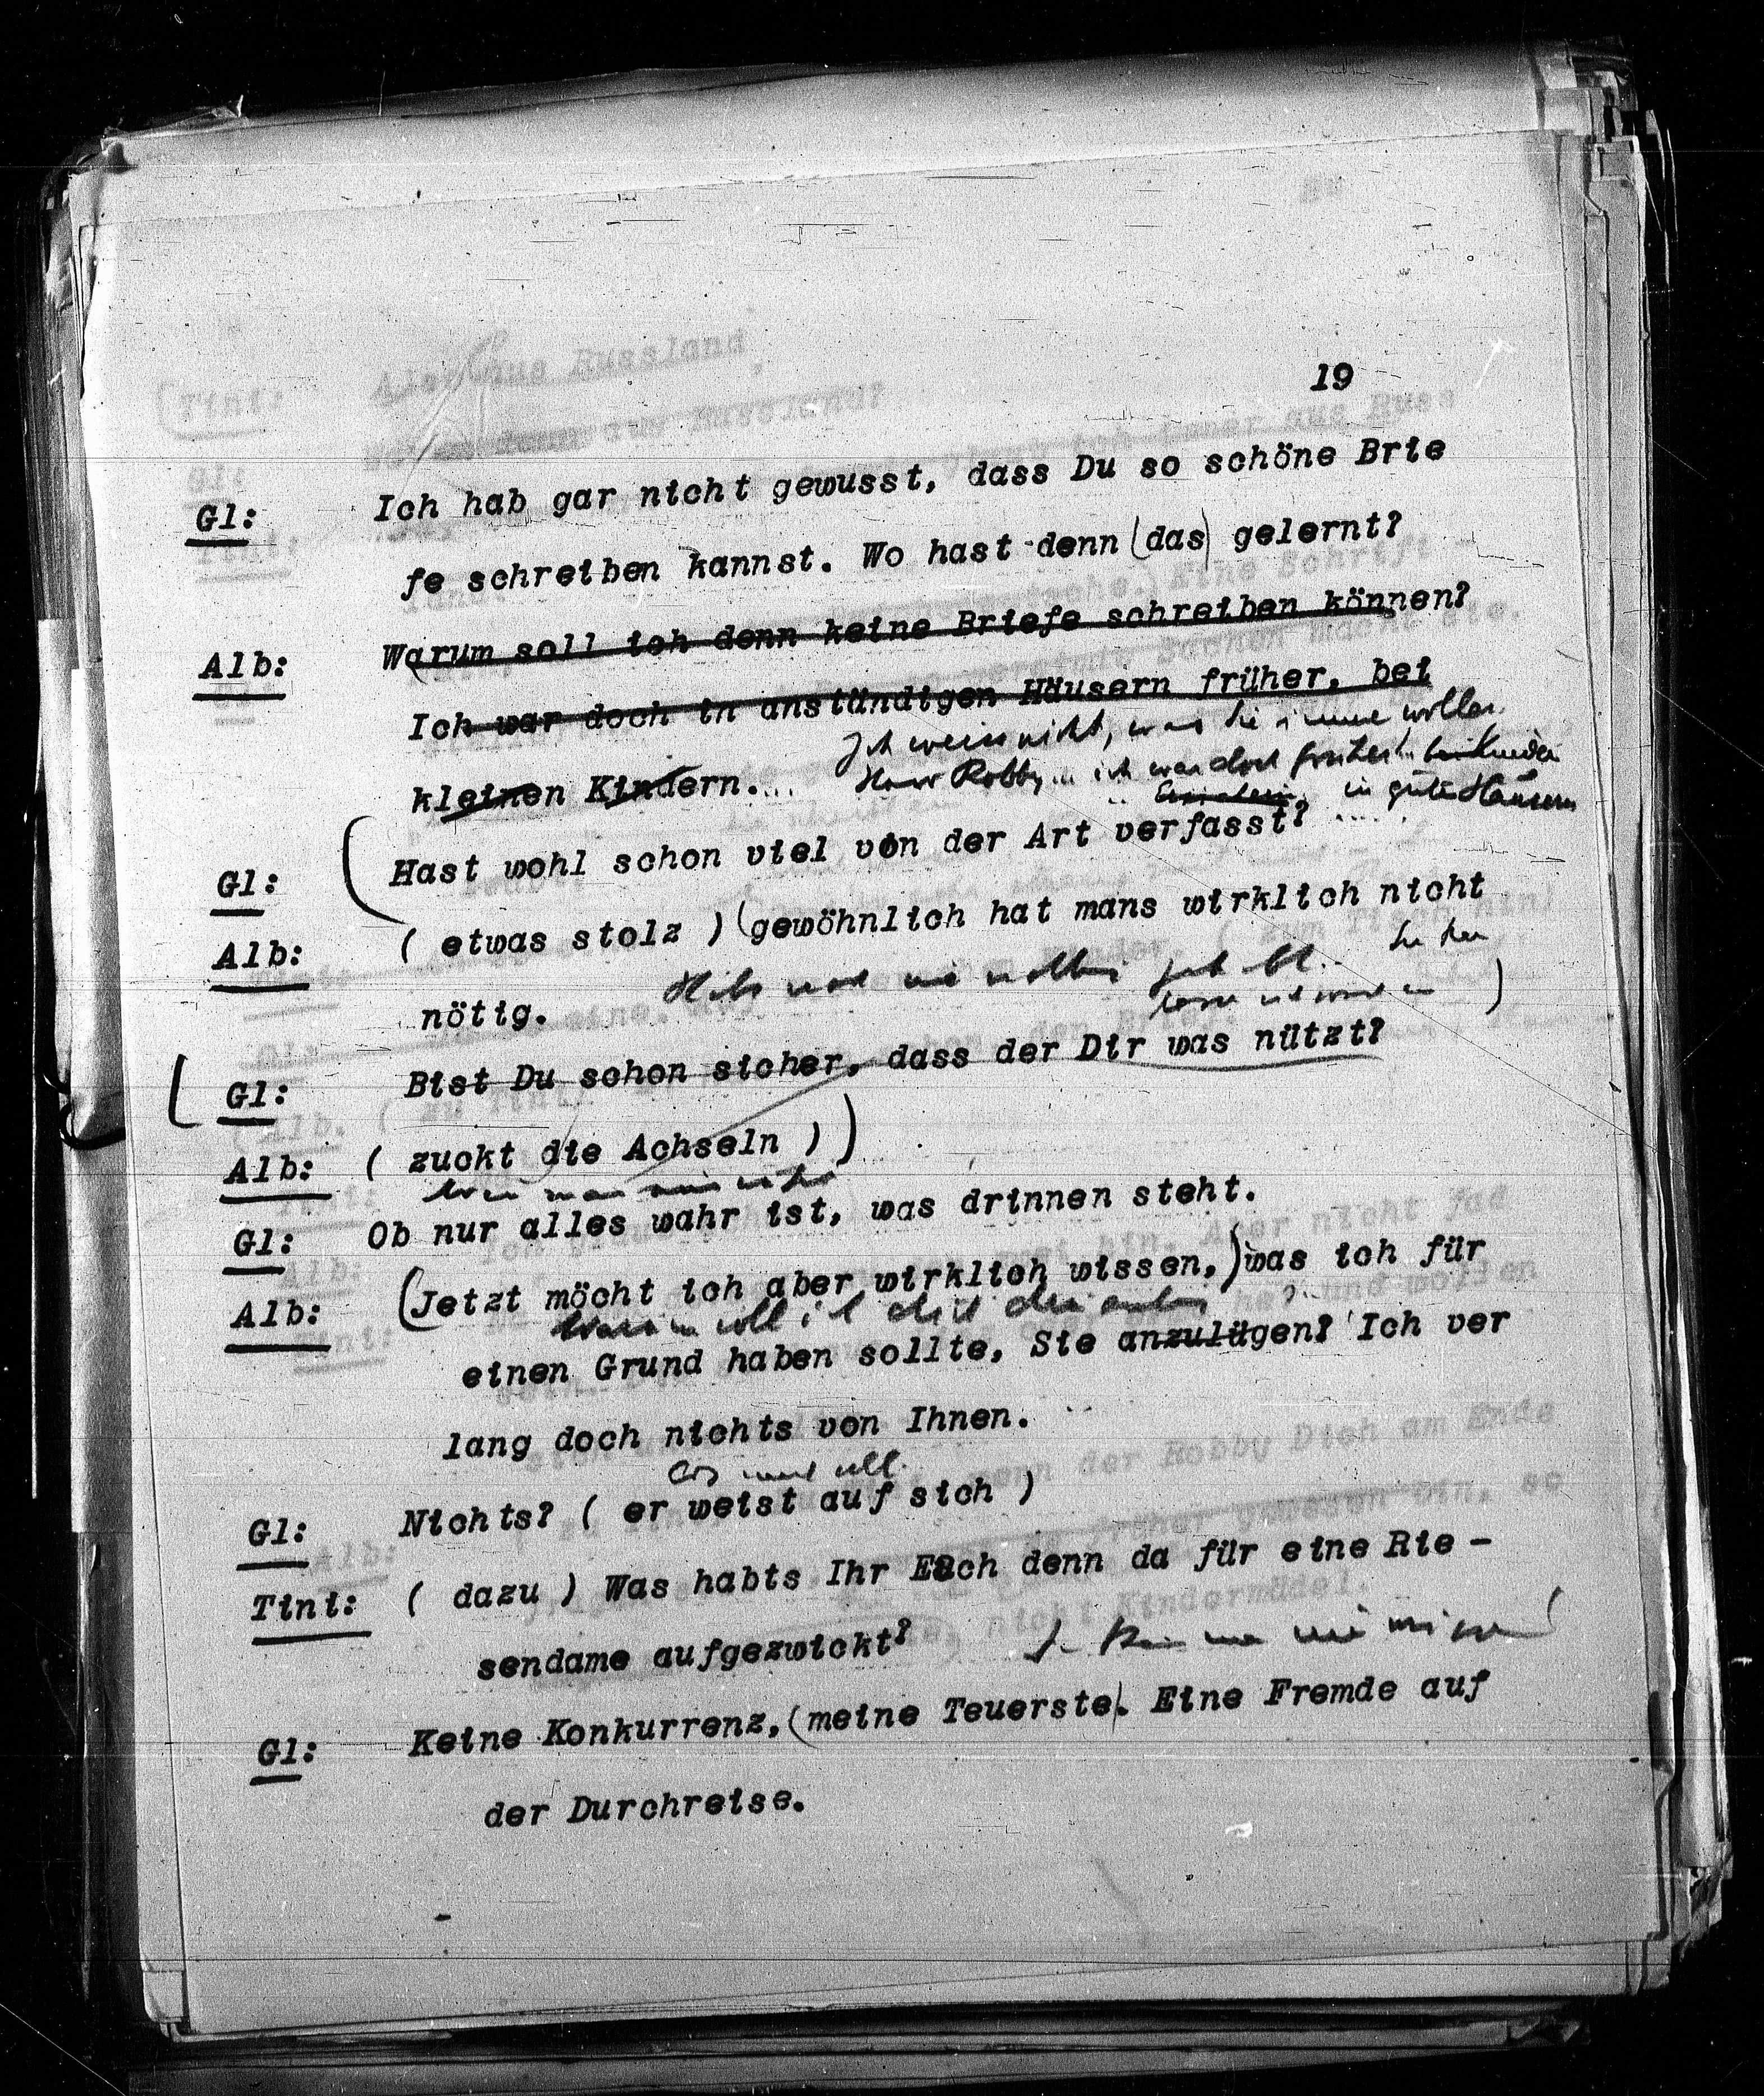 19
Gl: Ich hab gar nicht gewusst, dass Du so schöne Brie
fe schreiben kannst. Wo hast denn (das) gelernt?
Alb: Warum soll ich denn keine Briefe schreiben können?
Ich war doch in anständigen Häusern früher, bei
Ich weiss nicht, was Sie immer wollen,
kleinen Kindern...
Herr Robby... ich war doch früher.. bei Kinder
in gute Häusern
Gl: (Hast wohl schon viel von der Art verfasst?
Alb: ( etwas stolz ) (gewöhnlich hat mans wirklich nicht
nötig.
)
Gl: Bist Du schon sicher, dass der Dir was nützt?
Alb: ( zuckt die Achseln ) )
Gl: Ob nur alles wahr ist, was drinnen steht.
Alb: (Jetzt möcht ich aber wirklich wissen,) was ich für
Warum soll ich
einen Grund haben sollte, Sie anzulügen? Ich ver
lang doch nichts von Ihnen.
Gl: Nichts? ( er weist auf sich )
Tini: ( dazu ) Was habts Ihr Euch denn da für eine Rie -
sendame aufgezwickt?
Gl: Keine Konkurrenz, (meine Teuerste). Eine Fremde auf
der Durchreise.